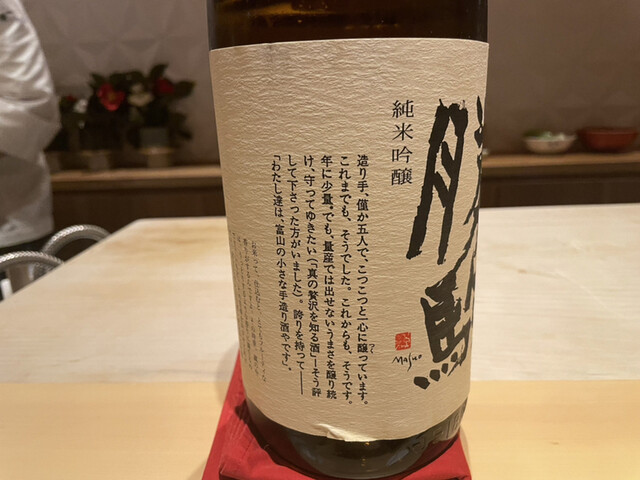 勝駒
純米吟醸
Masuo
造り手、僅か五人で、こつこつと一心に醸っています。
これまでも、そうでした。これからも、そうです。
年に少量。でも、量産では出せないうまさを醸り続
け、守ってゆきたい(「真の贅沢を知る酒」―そう評
して下さった方がいました)。誇りを持って――
「わたし達は、富山の小さな手造り酒やです」。